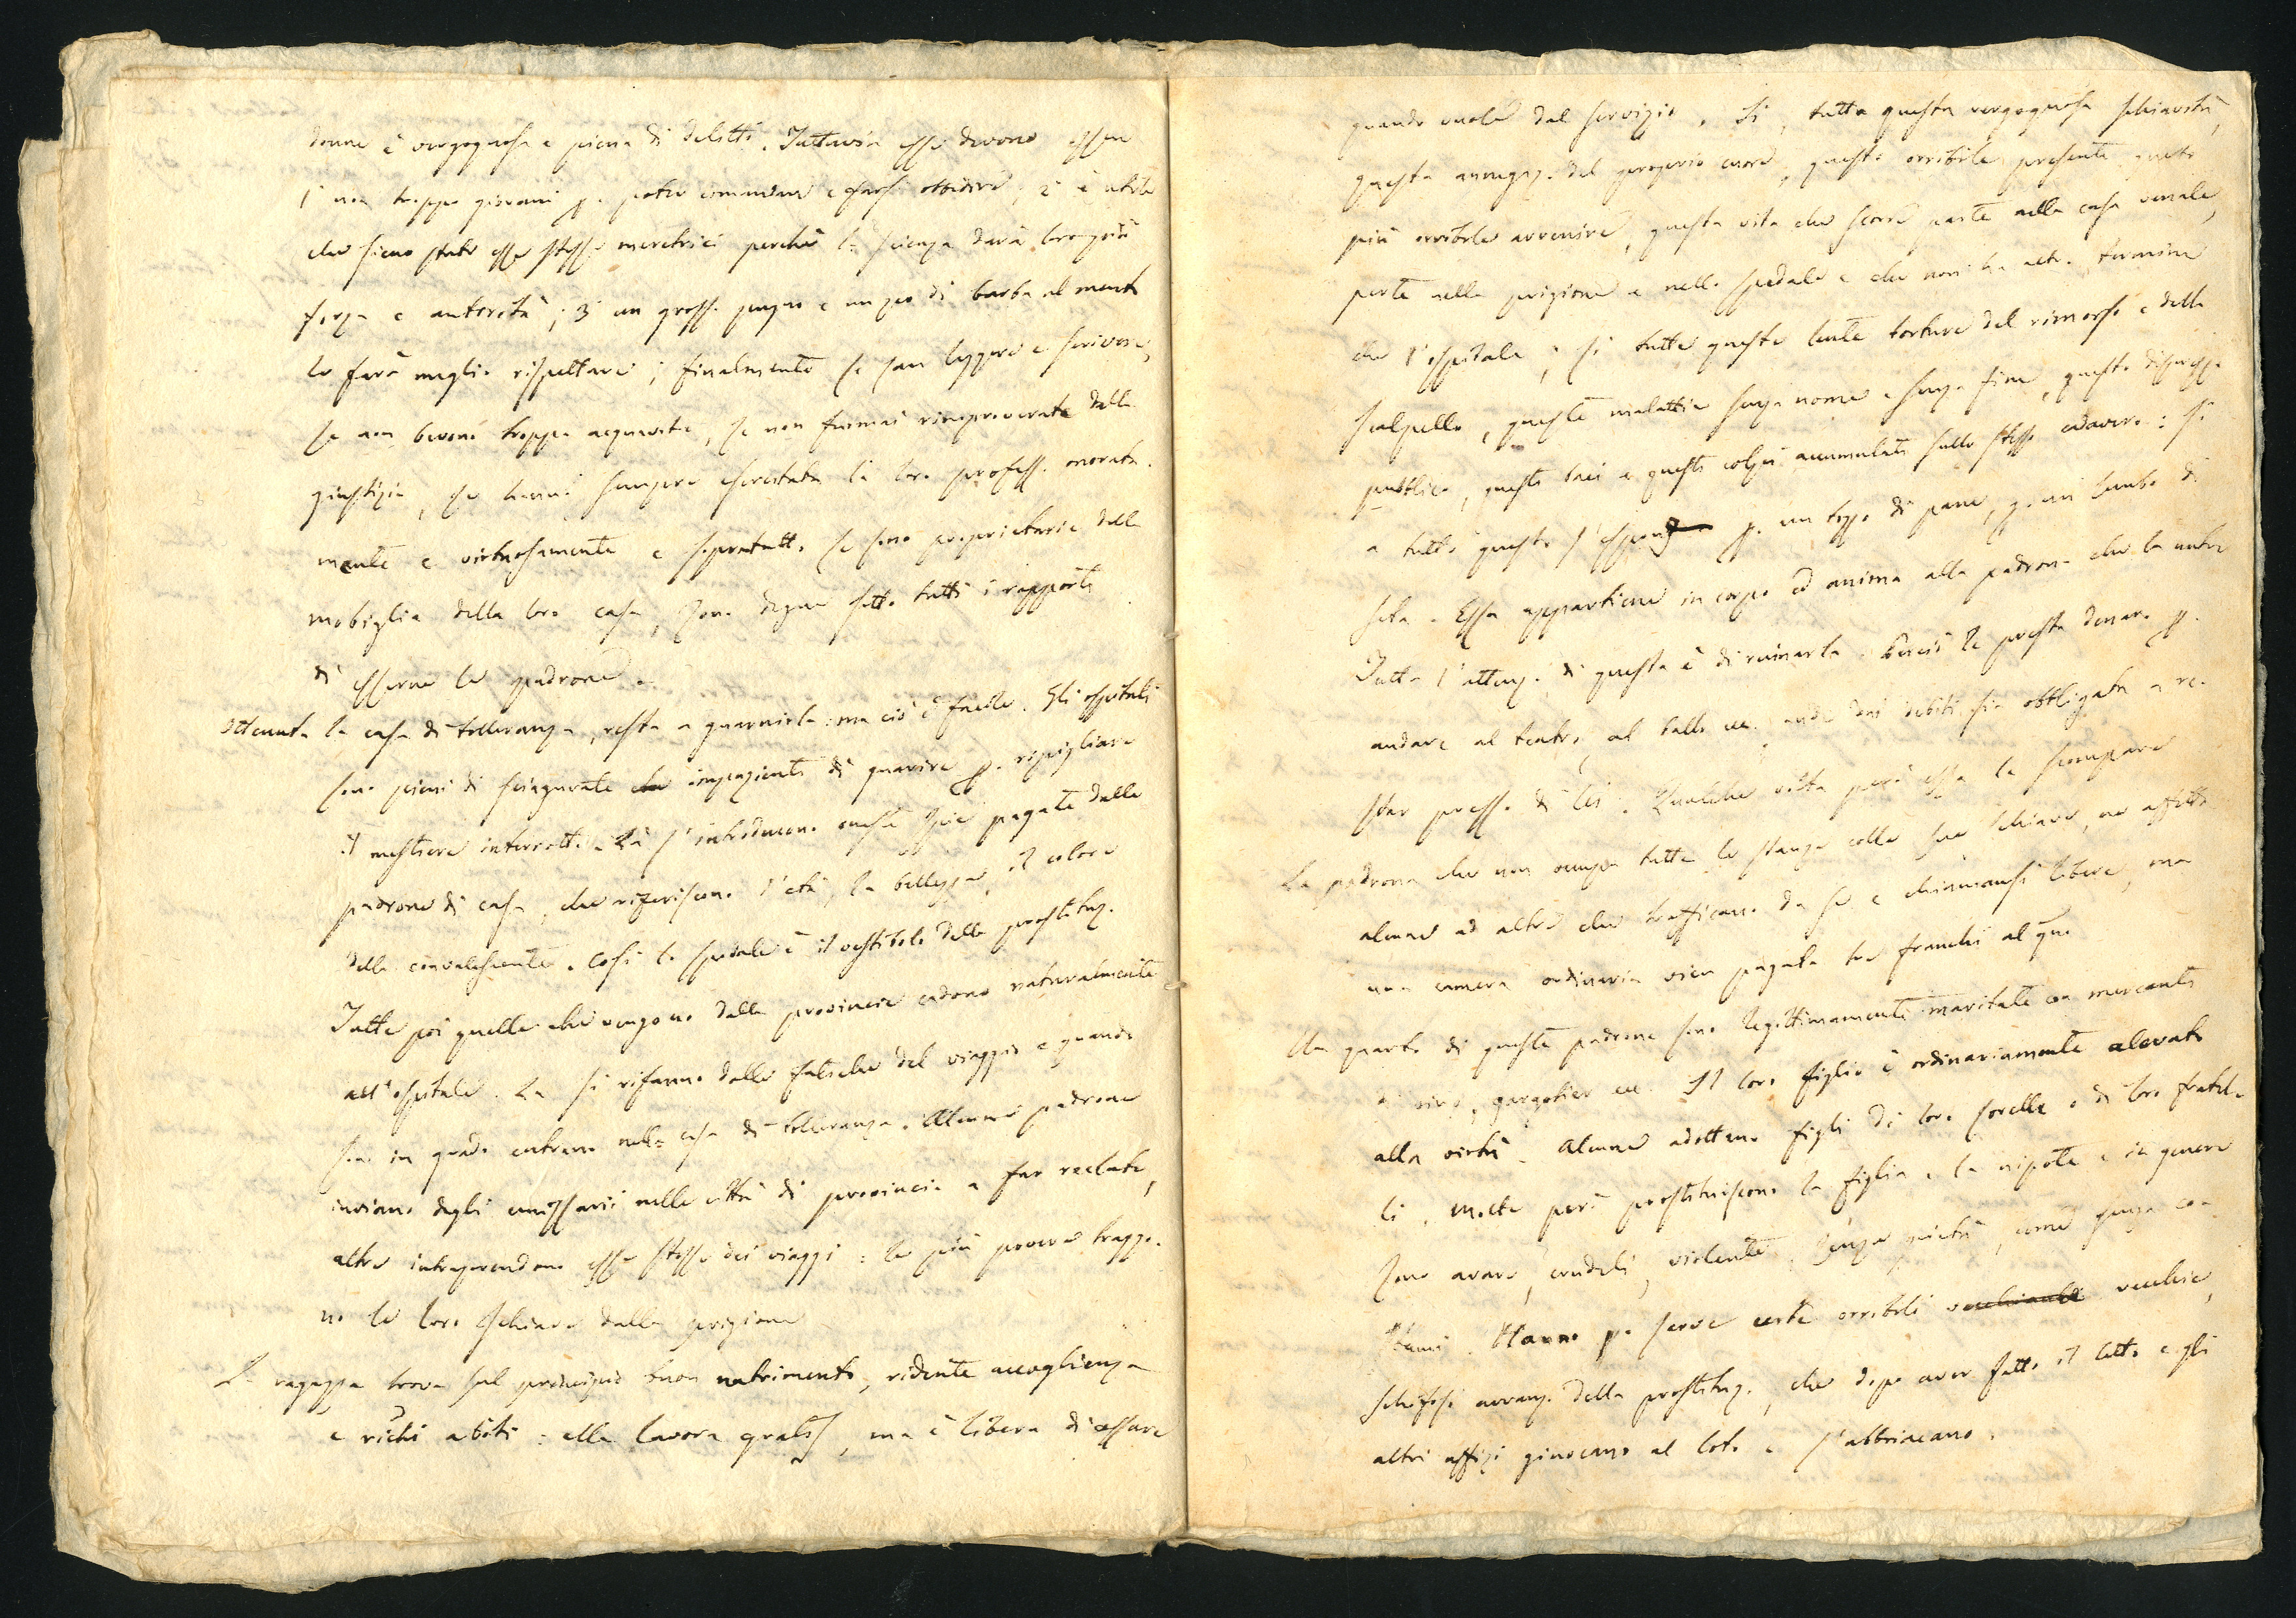 donne è vergognosa e piena di delitti. Tuttavia esse devono essere
1° non troppo giovani p. poter comandare e farsi obbidire; 2° è utile
che sieno state esse stesse meretrici perchè la scienza darà loro più
forza e autorità; 3° un grosso pugno e un po di barba al mento
le farà meglio rispettare; finalmente se san leggere e scrivere,
se non bevono troppa acquavite, se non furmai rimproverate dalla
giustizia, se hanno sempre esercitata la loro profess. onorata.
mente e virtuosamente e sopratutto se sono proprietarie della
mobiglia della loro casa, sono degne sotto tutti i rapporti
di esserne le padrone.
Ottenuta la casa di tolleranza, resta a guarnirla: ma ciò è facile. Gli ospitali
sono pieni di sciagurate impazienti di guarire p. ripigliare
il mestiere interrotto. Là s'introducono oneste spie pagate dalle
padrone di casa, che riferiscono l'età, la bellezza, il colore
della convalescente. Così lo spedale è il vestibolo della prostituz.
Tutte poi quelle che vengono dalle provincie cadono naturalmente
all'ospitale. La si rifanno dalle fatiche del viaggio e quando
sono in grado entrano nella casa di tolleranza. Alcune padrone
inviano degli emissarii nelle città di provincia a far reclute,
altre intraprendono esse stesse dei viaggi: le più povere traggo-
no le loro schiave dalla prigione
La ragazza trova sul principio buon nutrimento, ridente accoglienza
e richi abiti: ella lavora gratis, ma è libera di cessare
quando vuole dal servizio. Si, tutta questa vergognosa schiavitù,
questa annegaz. del proprio cuore, questo orribile presente, questo
più orribile avvenire, questa vita che scorre parte nella casa venale,
parte nella prigione e nello spedale e che non ha altro termine
che l'ospitale; si tutte queste lente torture del rimorso e dello
scalpello, queste malattie senza nome e senza fine, questo disprezzo
pubblico, questi baci e questi colpi accumulati sullo stesso cadavere: si
a tutto questo s'espon p. un tozzo di pane, p. un lembo di
seta. Essa appartiene in corpo ed anima alla padrona che la nutre
Tutta l'attenz. di questa è di rovinarla. Perciò le presta denaro p.
andare al teatro, al ballo ecc. onde dai debiti sia obbligata a re-
star presso di lei. Qualche volta però essa le scompare
La padrona che non occupa tutte le stanze colle sue schiave, ne affitta
alcune ad altre che trafficano da se e chiamansi libere, ma
una camera ordinaria vien pagata tre franchi al gno
Un quarto di queste padrone sono legittimamente maritate con mercanti
di vino, gargotier ecc. Il loro figlio è ordinariamente alevato
alla virtù. Alcune adottano figli di loro sorelle o di loro fratel-
li, molte però prostituiscono la figlia e la nipote e in genere
sono avare, crudeli, violente, senza pietà, come senza co-
stumi. Hanno p. serve certe orribili vecchie,
schifosi avvanz. della prostituz., che dopo aver fatto il letto e gli
altri uffizi giuocano al loto e s'abbriacano.